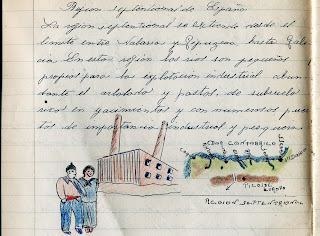 Region septentrional de España
La region septentrional se extiende desde el
limite entre Navarra y Guipuzcoa hasta Gali-
cia. En esta region los rios son pequeños
propios para la explotacion industrial abun-
dante el arbolado y pastos, de subsuelo
rico en yacimientos y con numerosos puer-
tos de importancia industrial y pesquera
MAR CANTABRICO
PICOS DE EUROPA
REGION SEPTENTRIONAL